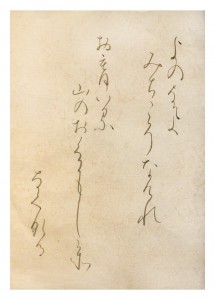 よのなかよ
みちこそなけれ
おもひいる
山のおくにもしか
そなくなる